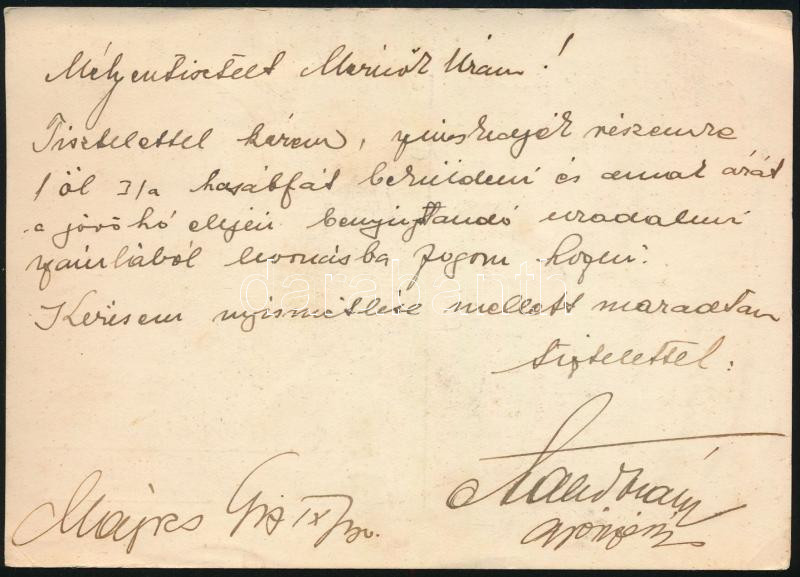 Mélyentisztelt Mérnök Uram!
Tisztelettel kérem, részemre
1 öl I/a hasábfát beküldeni és annak árát
a jövő hó elején benyújtandó uradalmi
számlából levonásba fogom hozni.
Kérésem megismétlése mellett maradtam
tisztelettel:
Majks
darabanth